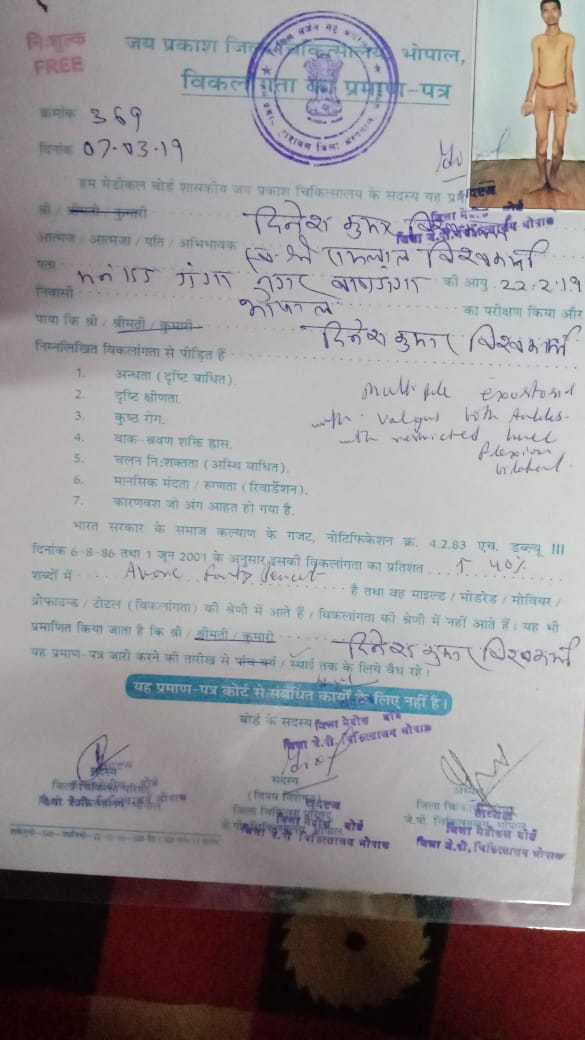 निःशुल्क
FREE
जय प्रकाश जिला चिकित्सालय भोपाल,
विकलांगता का प्रमाण-पत्र
क्रमांक 369
दिनांक 07-03-19
हम मेडीकल बोर्ड शासकीय जय प्रकाश चिकित्सालय के सदस्य यह प्र
श्री / श्रीमती / कुमारी दिनेश कुमार विश्वकर्मा
आत्मज / आत्मजा / पति / अभिभावक स्व. श्री रामलाल विश्वकर्मा
पता म नं 155 गंगा नगर बाणगंगा
निवासी भोपाल की आयु 22.2.19 का परीक्षण किया और
पाया कि श्री / श्रीमती / कुमारी दिनेश कुमार विश्वकर्मा
निम्नलिखित विकलांगता से पीड़ित हैं
1. अन्धता (दृष्टि बाधित).
2. दृष्टि क्षीणता.
3. कुष्ठ रोग.
4. वाक-श्रवण शक्ति ह्रास.
5. चलन निःशक्तता (अस्थि बाधित).
6. मानसिक मंदता / रुग्णता (रिटार्डेशन).
7. कारणवश जो अंग आहत हो गया है.
Multiple
with valgus both Ankles
with restricted knee
flexion
bilateral.
भारत सरकार के समाज कल्याण के गजट, नोटिफिकेशन क्र. 4.2.83 एच. डब्ल्यू III
दिनांक 6-8-86 तथा 1 जून 2001 के अनुसार इसकी विकलांगता का प्रतिशत 40%
शब्दों में Above forty percent है तथा वह माइल्ड / मोडरेड / मोवियर /
प्रोफाउन्ड / टोटल (विकलांगता) की श्रेणी में आते हैं / विकलांगता की श्रेणी में नहीं आते हैं। यह भी
प्रमाणित किया जाता है कि श्री / श्रीमती / कुमारी दिनेश कुमार विश्वकर्मा
यह प्रमाण-पत्र जारी करने की तारीख से पांच वर्ष / स्थाई तक के लिये वैध रहे।
यह प्रमाण-पत्र कोर्ट से संबंधित कार्यों के लिए नहीं है।
बोर्ड के सदस्य
जिला जे.पी. चिकित्सालय भोपाल
सदस्य
सदस्य
(विषय विशेषज्ञ)
अध्यक्ष
जिला मेडीकल बोर्ड
जिला जे.पी. चिकित्सालय भोपाल